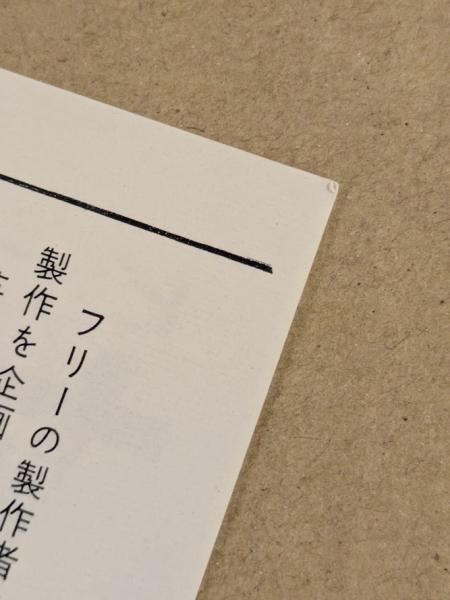 フリーの製作者
製作を企画